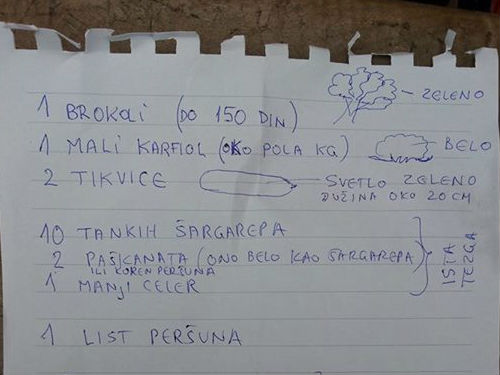 1 BROKAI (DO 150 DIN) - ZELENO
1 MALI KARFIOL (OKO POLA KG) BELO
2 TIKVICE SVETLO ZELENO
DUŽINA OKO 20 CM
10 TANKIH ŠARGAREPA
2 PAŠKANATA (ONO BELO KAO ŠARGAREPA)
ILI KOREN PERŠUNA
1 MANJI CELER
ISTA
TEZGA
1 LIST PERŠUNA